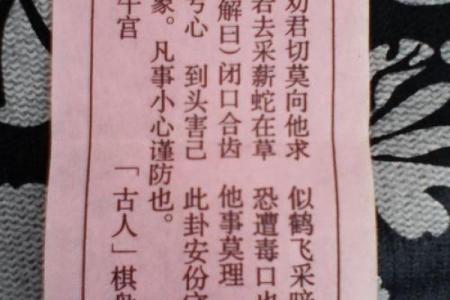 劝君切莫向他求 似鹤飞采
若去采薪蛇在草 恐遭毒口也
解曰）闭口合齿 他事莫理
亏心 到头害己 此卦安份守
象。凡事小心谨防也。
午宫 「古人」棋